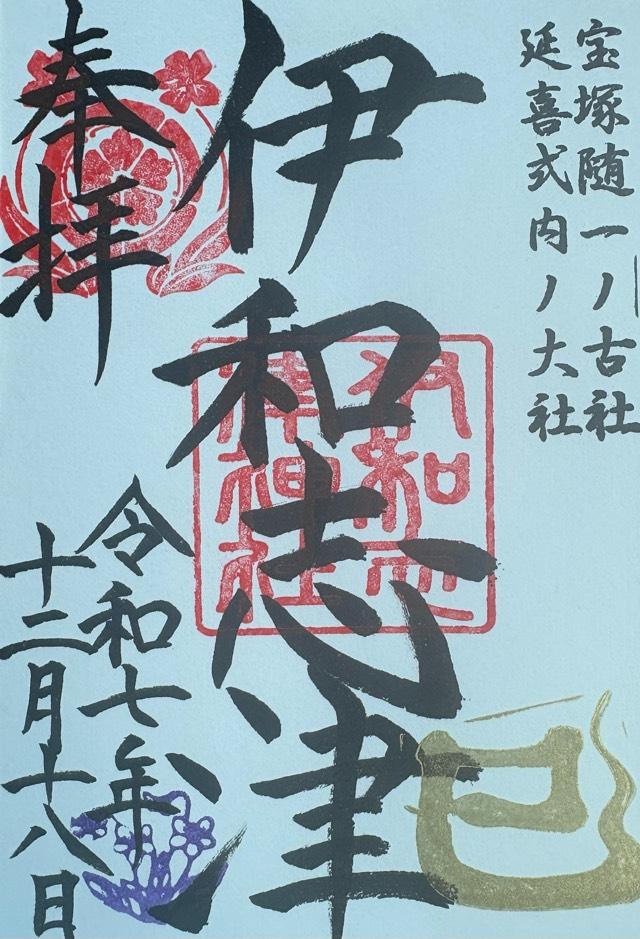 宝塚随一ノ古社
延喜式内ノ大社
伊和志津
奉拝
令和七年
十二月十八日
巳